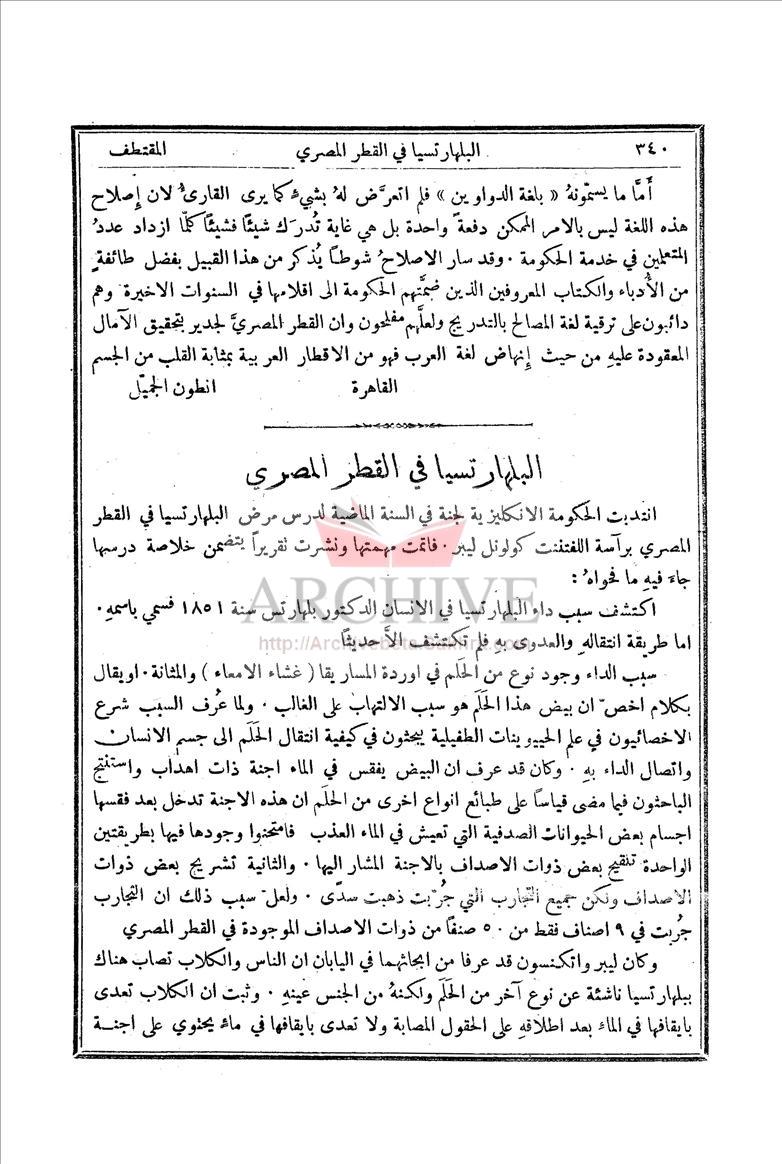 ٣٤٠ البلهارتسيا في القطر المصري المقتطف
أَمَّا ما يسمّونهُ « بلغة الدواوين » فلم اتعرَّض لهُ بشيءٍ كما يرى القارئُ لان إصلاح
هذه اللغة ليس بالامر الممكن دفعةً واحدة بل هي غاية تُدرَك شيئًا فشيئًا كلّما ازداد عددُ
المتعلمين في خدمة الحكومة ٠ وقد سار الاصلاح شوطًا يُذكر من هذا القبيل بفضل طائفةٍ
من الأُدباء والكتاب المعروفين الذين ضمَّتهم الحكومة الى اقلامها في السنوات الاخيرة وهم
دائبون على ترقية لغة المصالح بالتدريج ولعلَّهم مفلحون وان القطر المصريَّ لجدير بتحقيق الآمال
المعقودة عليهِ من حيث إِنهاض لغة العرب فهو من الاقطار العربية بمثابة القلب من الجسم
القاهرة انطون الجميّل
البلهارتسيا في القطر المصري
انتدبت الحكومة الانكليزية لجنة في السنة الماضية لدرس مرض البلهارتسيا في القطر
المصري برآسة اللفتننت كولونل ليبر ٠ فاتمت مهمتها ونشرت تقريرًا يتضمن خلاصة درسها
جاءَ فيهِ ما فحواهُ :
ARCHIVE
اكتشف سبب داء البلهارتسيا في الانسان الدكتور بلهارتس سنة ١٨٥١ فسمي باسمهِ ٠
اما طريقة انتقالهِ والعدوى بهِ فلم تكتشف الاَّ حديثًا
http://Archivebeta.Sakhrit.com
سبب الداء وجود نوع من الحَلم في اوردة المساريقا ( غشاء الامعاء ) والمثانة ٠ او يقال
بكلام اخصّ ان بيض هذا الحَلَم هو سبب الالتهاب على الغالب ٠ ولما عُرف السبب شرع
الاخصائيون في علم الحييوينات الطفيلية يبحثون في كيفية انتقال الحَلَم الى جسم الانسان
واتصال الداء بهِ ٠ وكان قد عرف ان البيض يفقس في الماء اجنة ذات اهداب واستنتج
الباحثون فيما مضى قياسًا على طبائع انواع اخرى من الحلَم ان هذه الاجنة تدخل بعد فقسها
اجسام بعض الحيوانات الصدفية التي تعيش في الماء العذب فامتحنوا وجودها فيها بطريقتين
الواحدة تنقيح بعض ذوات الاصداف بالاجنة المشار اليها ٠ والثانية تشريح بعض ذوات
الاصداف ولكن جميع التجارب التي جُرّبت ذهبت سدًى ٠ ولعلّ سبب ذلك ان التجارب
جُرّبت في ٩ اصناف فقط من ٥٠ صنفًا من ذوات الاصداف الموجودة في القطر المصري
وكان ليبر واتكنسون قد عرفا من ابحاثهما في اليابان ان الناس والكلاب تصاب هناك
ببلهارتسيا ناشئة عن نوع آخر من الحَلَم ولكنهُ من الجنس عينهِ ٠ وثبت ان الكلاب تعدى
بايقافها في الماء بعد اطلاقهِ على الحقول المصابة ولا تعدى بايقافها في ماءٍ يحتوي على اجنة